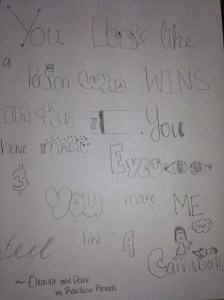 You Look like
a Person Who WINS
in the End. You
have MAGIC Eyes
& You make ME
feel like A
Cannibal!
~ Eleanor and Park
by Rainbow Rowell